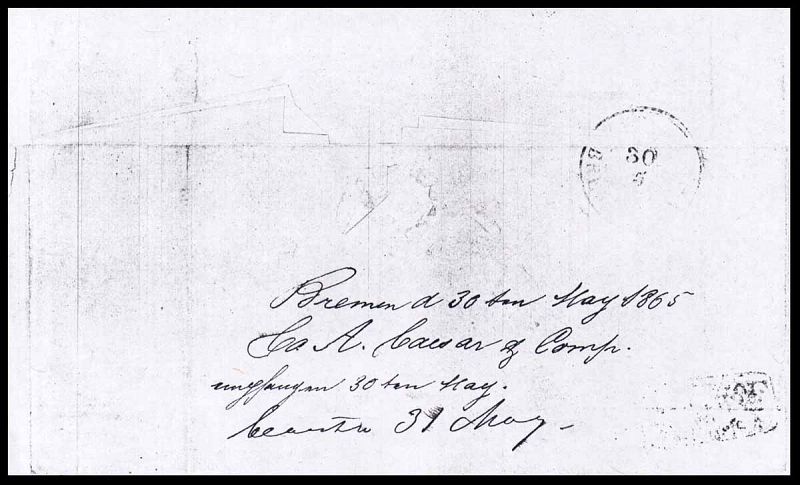 BRE
30
5
Bremen d 30 ten May 1865
Ca A. Caesar & Comp.
empfangen 30 ten May.
beantw 31 May